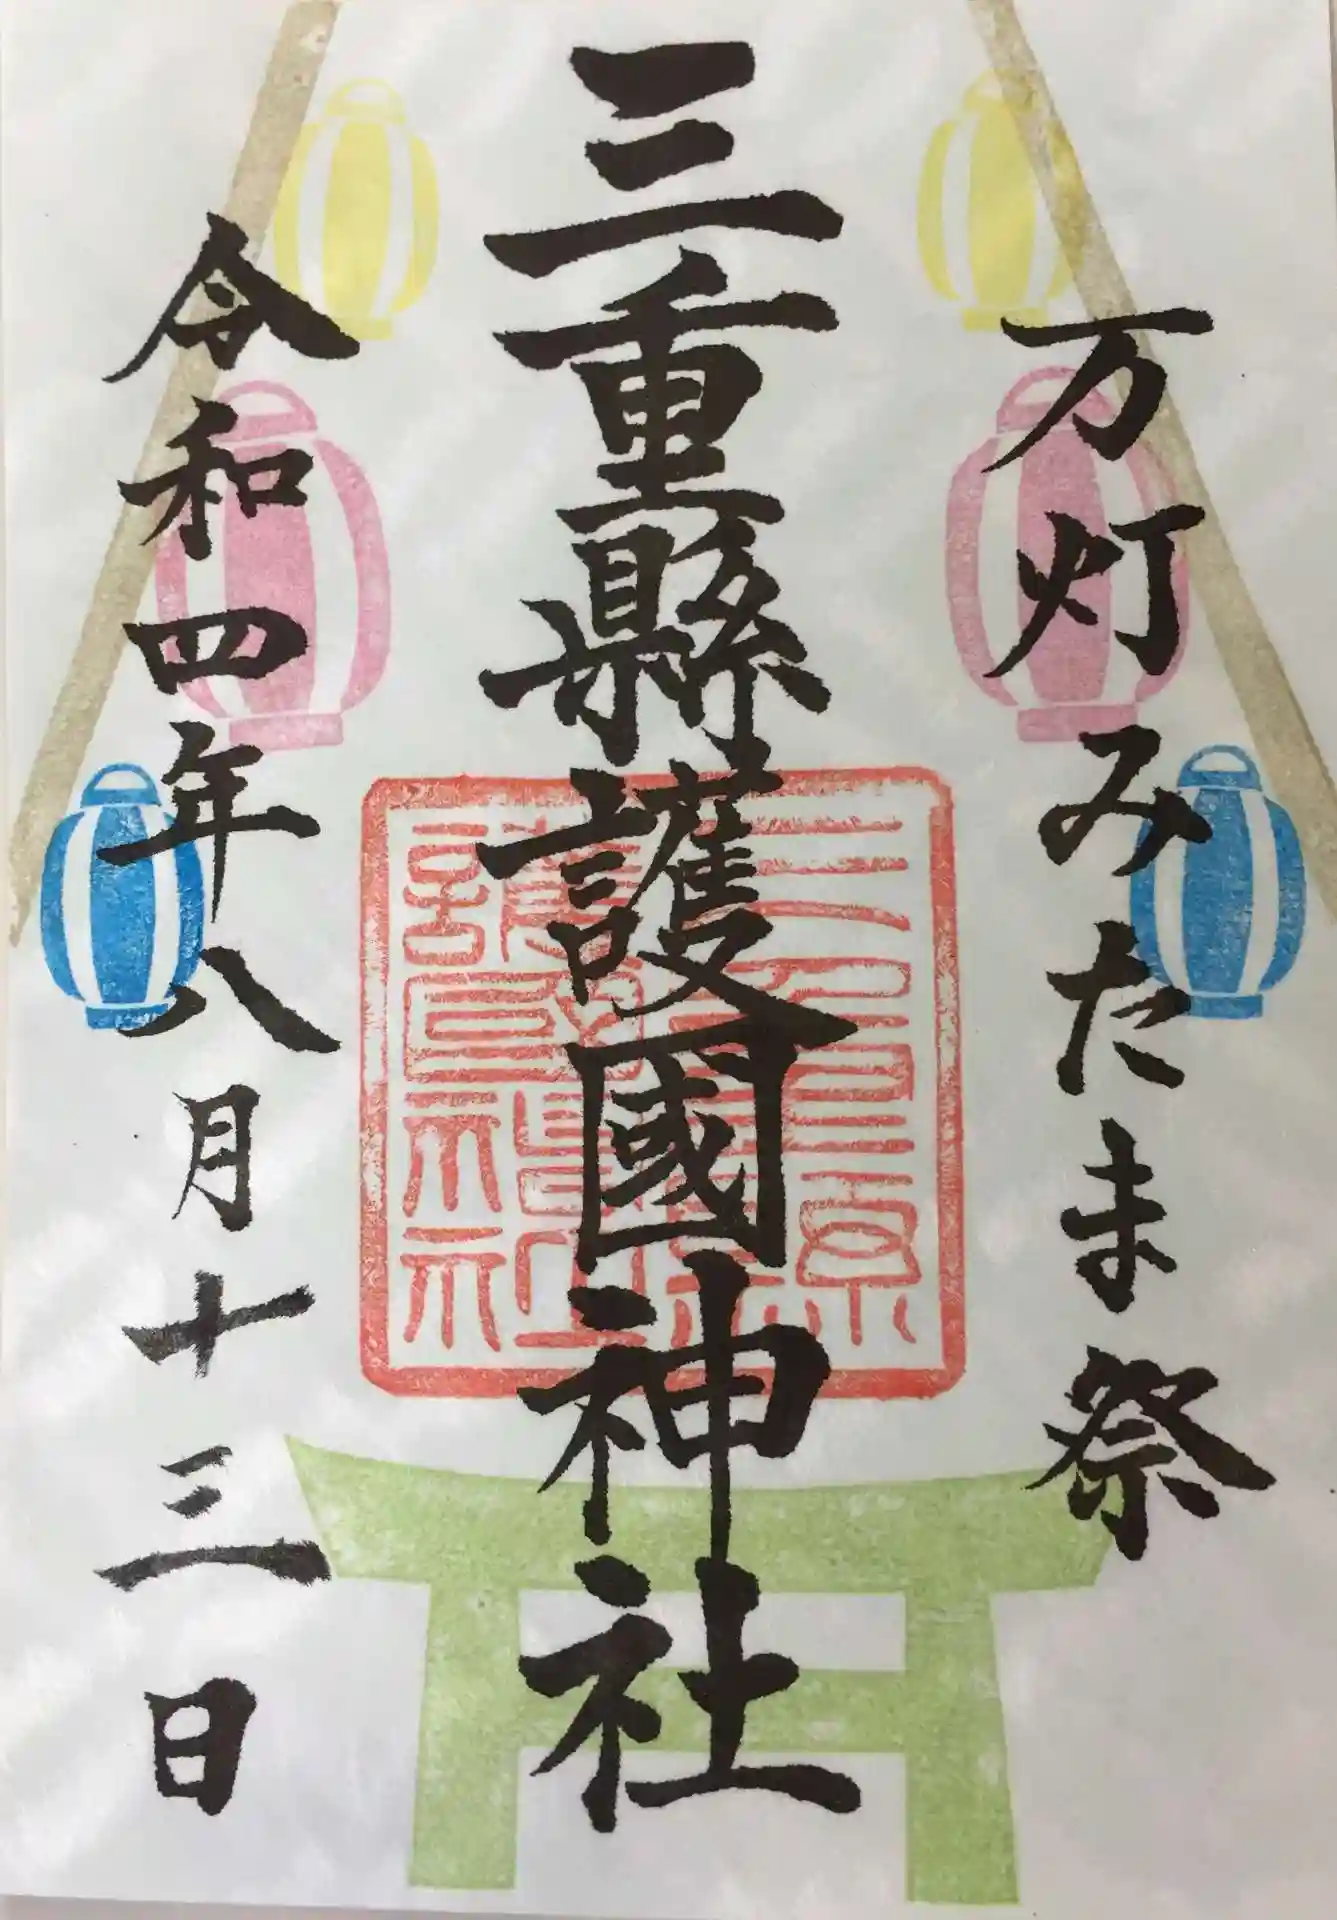 万灯みたま祭
三重縣護國神社
三重縣
護國神社
令和四年八月十三日